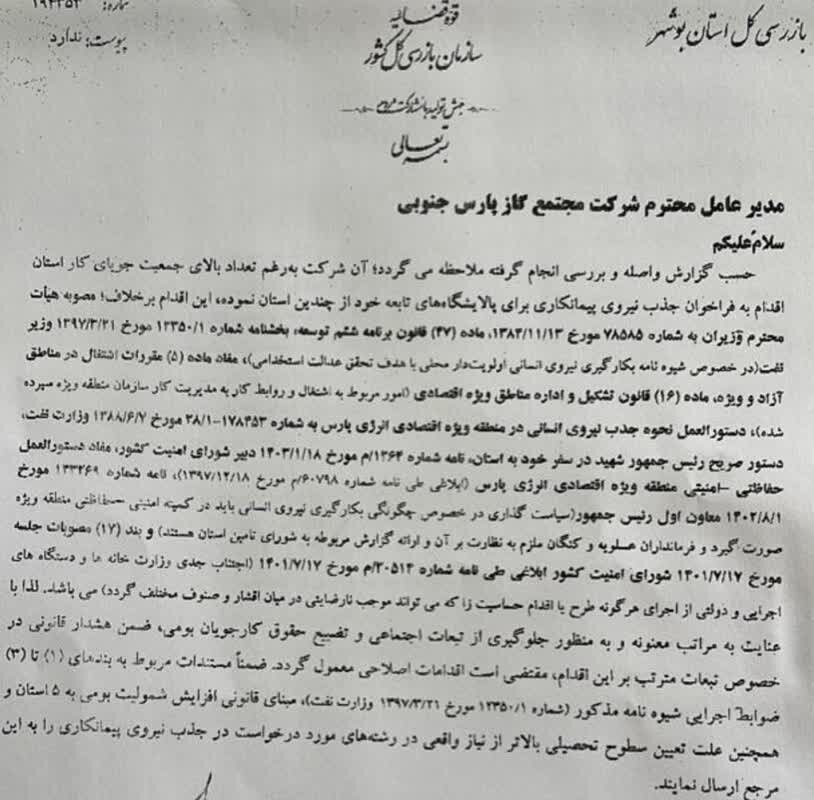 شماره: ۱۹۴۲۵۳
پیوست: ندارد
قوه قضائیه
سازمان بازرسی کل کشور
بازرسی کل استان بوشهر
جهش تولید با مشارکت مردم
بسمه تعالی
مدیر عامل محترم شرکت مجتمع گاز پارس جنوبی
سلام‌علیکم
حسب گزارش واصله و بررسی انجام گرفته ملاحظه می گردد؛ آن شرکت به‌رغم تعداد بالای جمعیت جویای کار استان
اقدام به فراخوان جذب نیروی پیمانکاری برای پالایشگاه‌های تابعه خود از چندین استان نموده، این اقدام برخلاف؛ مصوبه هیأت
محترم وزیران به شماره ۷۸۵۸۵ مورخ ۱۳۸۳/۱۱/۱۳، ماده (۴۷) قانون برنامه ششم توسعه، بخشنامه شماره ۱۲۳۵۰/۱ مورخ ۱۳۹۷/۳/۲۱ وزیر
نفت(در خصوص شیوه نامه بکارگیری نیروی انسانی اولویت‌دار محلی با هدف تحقق عدالت استخدامی)، مفاد ماده (۵) مقررات اشتغال در مناطق
آزاد و ویژه، ماده (۱۶) قانون تشکیل و اداره مناطق ویژه اقتصادی (امور مربوط به اشتغال و روابط کار به مدیریت کار سازمان منطقه ویژه سپرده
شده)، دستورالعمل نحوه جذب نیروی انسانی در منطقه ویژه اقتصادی انرژی پارس به شماره ۱۷۸۴۵۳-۳۸/۱ مورخ ۱۳۸۸/۶/۷ وزارت نفت،
دستور صریح رئیس جمهور شهید در سفر خود به استان، نامه شماره ۱۳۶۴/م مورخ ۱۴۰۳/۱/۱۸ دبیر شورای امنیت کشور، مفاد دستورالعمل
حفاظتی -امنیتی منطقه ویژه اقتصادی انرژی پارس (ابلاغی طی نامه شماره ۶۰۷۹۸/م مورخ ۱۳۹۷/۱۲/۱۸)، نامه شماره ۱۳۳۲۶۹ مورخ
۱۴۰۲/۸/۱ معاون اول رئیس جمهور(سیاست گذاری در خصوص چگونگی بکارگیری نیروی انسانی باید در کمیته امنیتی حفاظتی منطقه ویژه
صورت گیرد و فرمانداران عسلویه و کنگان ملزم به نظارت بر آن و ارائه گزارش مربوطه به شورای تامین استان هستند) و بند (۱۷) مصوبات جلسه
مورخ ۱۴۰۱/۷/۱۷ شورای امنیت کشور ابلاغی طی نامه شماره ۲۰۵۱۴/م مورخ ۱۴۰۱/۷/۱۷ (اجتناب جدی وزارت خانه ها و دستگاه های
اجرایی و دولتی از اجرای هرگونه طرح یا اقدام حساسیت زا که می تواند موجب نارضایتی در میان اقشار و صنوف مختلف گردد) می باشد. لذا با
عنایت به مراتب معنونه و به منظور جلوگیری از تبعات اجتماعی و تضییع حقوق کارجویان بومی، ضمن هشدار قانونی در
خصوص تبعات مترتب بر این اقدام، مقتضی است اقدامات اصلاحی معمول گردد. ضمناً مستندات مربوط به بندهای (۱) تا (۳)
ضوابط اجرایی شیوه نامه مذکور (شماره ۱۲۳۵۰/۱ مورخ ۱۳۹۷/۳/۲۱ وزارت نفت)، مبنای قانونی افزایش شمولیت بومی به ۵ استان و
همچنین علت تعیین سطوح تحصیلی بالاتر از نیاز واقعی در رشته‌های مورد درخواست در جذب نیروی پیمانکاری را به این
مرجع ارسال نمایند.